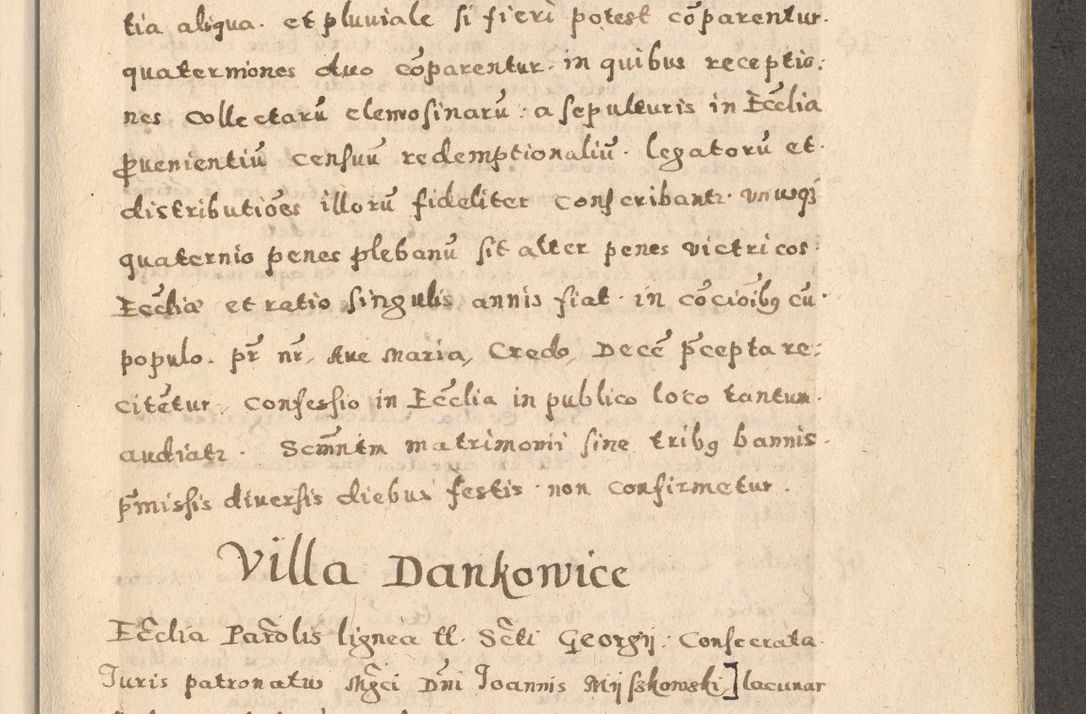 tia aliqua. et pluuiale si fieri potest cõparentur.
quaterniones duo cõparentur. in quibus receptio:
nes Collectarũ elemosinarũ: a sepulturis in Eccl̃ia
p̃uenientiũ censuũ redemptionaliũ. legatorũ et.
distributiões illorũ fideliter conscribantr. vnusqȝ
quaternio penes plebanũ sit alter penes victricos
Eccl̃iæ et ratio singulis annis fiat. in cõcioĩbꝫ cũ.
populo. pr̃ nr̃, Aue Maria, Credo, Decẽ p̃cepta re:
citẽtur, Confessio in Eccl̃ia in publico loco tantum.
audiatr. Scm̃ntm matrimonii sine tribꝫ bannis.
p̃missis diuersis diebus festis. non confirmetur.
Villa Dankowice
Eccl̃ia Paro͠lis lignea tt. Sc̃ti Georgij: Consecrata.
Iuris patronatus Mg̃ci Dñi Ioannis Mijszkowski] lacunar